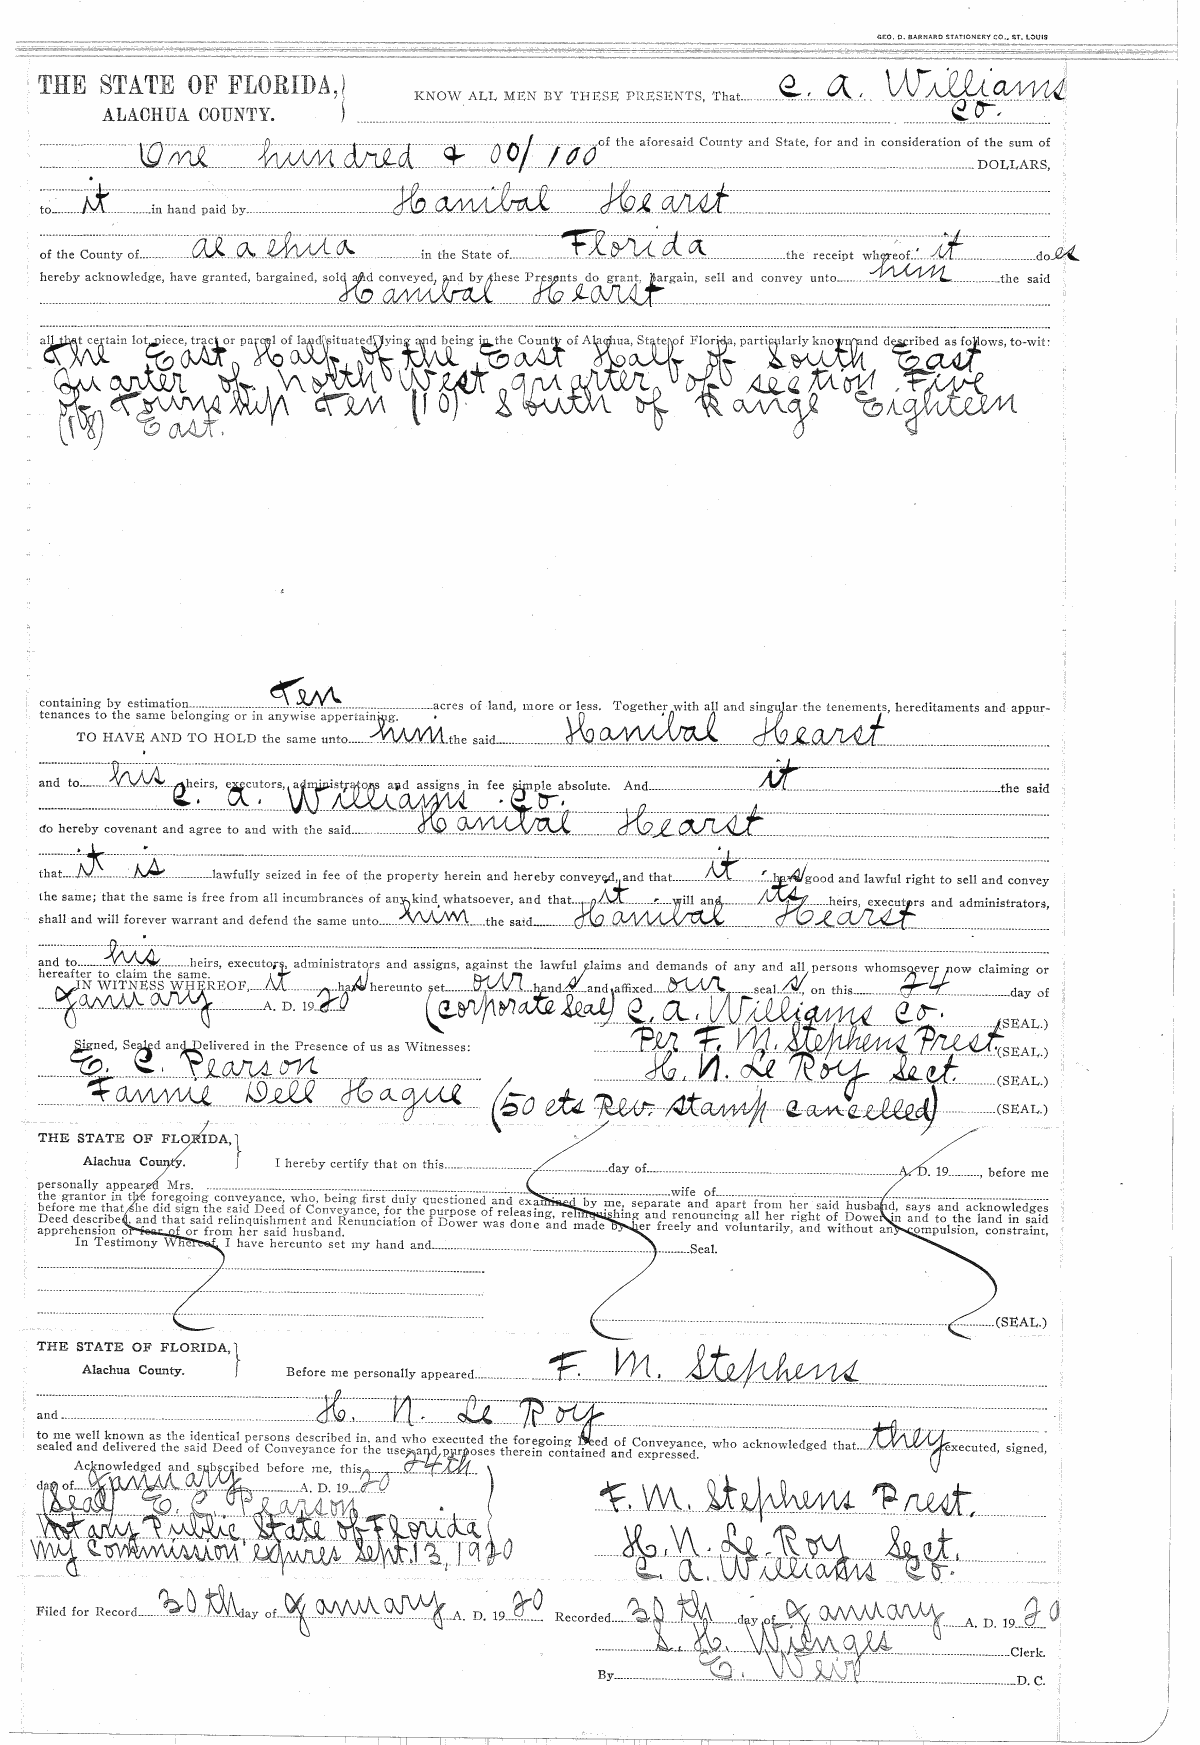 GEO. D. BARNARD STATIONERY CO., ST. LOUIS
THE STATE OF FLORIDA,
ALACHUA COUNTY.
KNOW ALL MEN BY THESE PRESENTS, That C. A. Williams
Co.
of the aforesaid County and State, for and in consideration of the sum of
One hundred & 00/100 DOLLARS,
to it in hand paid by Hanibal Hearst
of the County of Alachua in the State of Florida the receipt whereof it does
hereby acknowledge, have granted, bargained, sold and conveyed, and by these Presents do grant, bargain, sell and convey unto him the said
Hanibal Hearst
all that certain lot, piece, tract or parcel of land situated, lying and being in the County of Alachua, State of Florida, particularly known and described as follows, to-wit:
The East Half of the East Half of South East
Quarter of North West quarter of section Five
of Township Ten (10) South of Range Eighteen
(18) East.
containing by estimation Ten acres of land, more or less. Together with all and singular the tenements, hereditaments and appur-
tenances to the same belonging or in anywise appertaining.
TO HAVE AND TO HOLD the same unto him the said Hanibal Hearst
and to his heirs, executors, administrators and assigns in fee simple absolute. And it the said
C. A. Williams Co.
do hereby covenant and agree to and with the said Hanibal Hearst
that it is lawfully seized in fee of the property herein and hereby conveyed, and that it has good and lawful right to sell and convey
the same; that the same is free from all incumbrances of any kind whatsoever, and that it will and its heirs, executors and administrators,
shall and will forever warrant and defend the same unto him the said Hanibal Hearst
and to his heirs, executors, administrators and assigns, against the lawful claims and demands of any and all persons whomsoever now claiming or
hereafter to claim the same.
IN WITNESS WHEREOF, it has hereunto set our hands and affixed our seals, on this 24 day of
January A. D. 1920 (Corporate Seal) C. A. Williams Co. (SEAL.)
Per F. M. Stephens Prest. (SEAL.)
Signed, Sealed and Delivered in the Presence of us as Witnesses:
E. C. Pearson H. N. Le Roy Sect. (SEAL.)
Fannie Dell Hague (50 cts Rev. stamp cancelled) (SEAL.)
THE STATE OF FLORIDA,
Alachua County.
I hereby certify that on this day of A. D. 19 , before me
personally appeared Mrs. wife of
the grantor in the foregoing conveyance, who, being first duly questioned and examined by me, separate and apart from her said husband, says and acknowledges
before me that she did sign the said Deed of Conveyance, for the purpose of releasing, relinquishing and renouncing all her right of Dower in and to the land in said
Deed described, and that said relinquishment and Renunciation of Dower was done and made by her freely and voluntarily, and without any compulsion, constraint,
apprehension or fear of or from her said husband.
In Testimony Whereof, I have hereunto set my hand and Seal.
(SEAL.)
THE STATE OF FLORIDA,
Alachua County.
Before me personally appeared F. M. Stephens
and H. N. Le Roy
to me well known as the identical persons described in, and who executed the foregoing Deed of Conveyance, who acknowledged that they executed, signed,
sealed and delivered the said Deed of Conveyance for the uses and purposes therein contained and expressed.
Acknowledged and subscribed before me, this 24th
day of January A. D. 1920
(Seal) E. C. Pearson F. M. Stephens Prest.
Notary Public State of Florida
My Commission expires Sept. 13, 1920 H. N. Le Roy Sect.
C. A. Williams Co.
Filed for Record 30th day of January A. D. 1920 Recorded 30th day of January A. D. 1920
S. H. Wienges Clerk.
By E. Weir D. C.